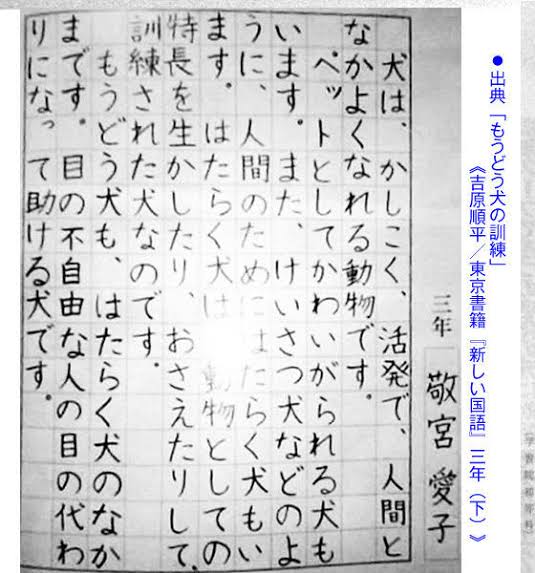 ●出典「もうどう犬の訓練」
《吉原順平／東京書籍『新しい国語』三年（下）》
三年　敬宮愛子
犬は、かしこく、活発で、人間と
なかよくなれる動物です。
ペットとしてかわいがられる犬も
います。また、けいさつ犬などのよ
うに、人間のためにはたらく犬もい
ます。はたらく犬は、動物としての
特長を生かしたり、おさえたりして、
訓練された犬なのです。
もうどう犬も、はたらく犬のなか
まです。目の不自由な人の目の代わ
りになって助ける犬です。